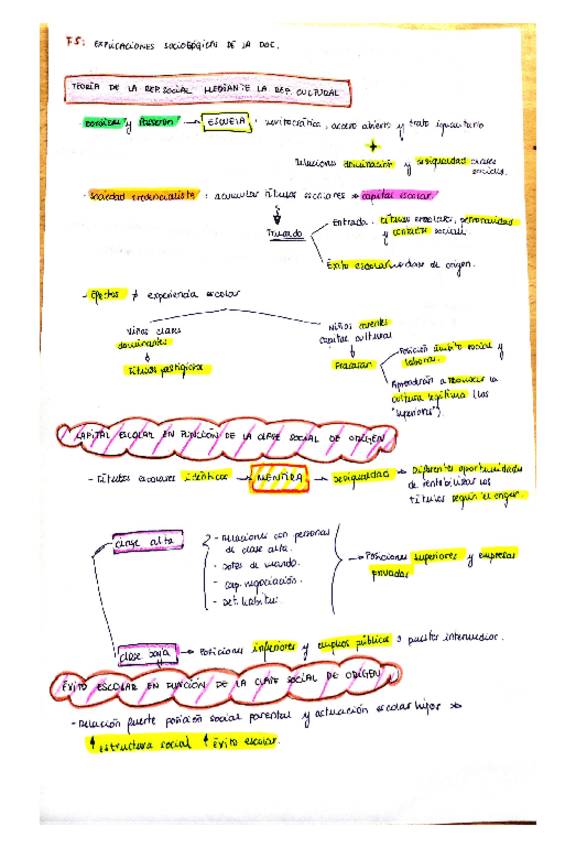 T.5: EXPLICACIONES SOCIOLÓGICAS DE LA DOC.
TEORÍA DE LA REP. SOCIAL MEDIANTE LA REP. CULTURAL
- Bourdieu y Passeron → ESCUELA : meritocrática, acceso abierto y trato igualitario
+
Relaciones dominación y desigualdad clases
sociales.
- Sociedad credencialista : acumular títulos escolares → capital escolar
Entrada. títulos escolares, personalidad
y contactos sociales.
Éxito escolar clase de origen.
- Efectos ≠ experiencia escolar
Niños clases
dominantes
Títulos prestigiosos
Niños carentes
capital cultural
Fracasan
Posición ámbito social y
laboral.
Aprenderán a reconocer la
cultura legítima (los
"superiores").
CAPITAL ESCOLAR EN FUNCIÓN DE LA CLASE SOCIAL DE ORIGEN
- Títulos escolares idénticos → MENTIRA → desigualdad → Diferentes oportunidades
de rentabilizar los
títulos según el origen.
clase alta
- Relaciones con personas
de clase alta.
- Dotes de mando.
- Cap. negociación.
- Det. habitus.
→ Posiciones superiores y empresas
privadas
clase baja → Posiciones inferiores y empleos públicos o puestos intermedios.
ÉXITO ESCOLAR EN FUNCIÓN DE LA CLASE SOCIAL DE ORIGEN
- Relación fuerte posición social parental y actuación escolar hijos →
↑ estructura social ↑ éxito escolar.